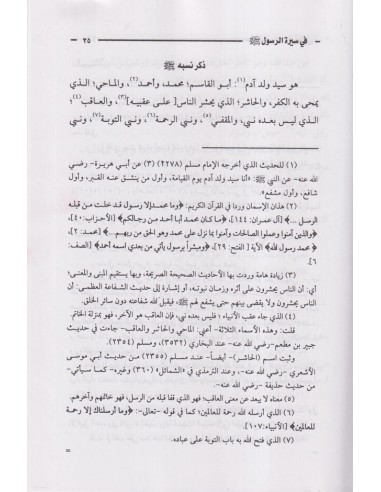 في سيرة الرسول ﷺ ٢٥
ذكر نسبه ﷺ
هو سيد ولد آدم(١): أبو القاسم؛ محمد، وأحمد(٢)، والماحي؛ الذي
يمحى به الكفر، والحاشر؛ الذي يحشر الناس [على عقبيه](٣)، والعاقب(٤)؛
الذي ليس بعده نبي، والمقفي(٥)، ونبي الرحمة(٦)، ونبي التوبة(٧)، ونبي
(١) للحديث الذي أخرجه الإمام مسلم (٢٢٧٨) (٣) عن أبي هريرة- رضي
الله عنه- عن النبي ﷺ: «أنا سيد ولد آدم يوم القيامة، وأول من ينشق عنه القبر، وأول
شافع، وأول مشفع».
(٢) هذان الإسمان وردا في القرآن الكريم: ﴿وما محمد إلا رسول قد خلت من قبله
الرسل ...﴾ [آل عمران: ١٤٤]، ﴿ما كان محمد أبا أحد من رجالكم﴾ [الأحزاب: ٤٠]،
﴿والذين آمنوا وعملوا الصالحات وآمنوا بما نزل على محمد وهو الحق من ربهم...﴾ [محمد: ٢]،
﴿محمد رسول الله﴾ الآية [الفتح: ٢٩]، ﴿ومبشراً برسول يأتي من بعدي اسمه أحمد﴾ [الصف:
٦].
(٣) زيادة هامة وردت بها الأحاديث الصحيحة الصريحة، وبها يستقيم المبنى والمعنى؛
أي: أن الناس يحشرون على أثره وزمان نبوته، أو إشارة إلى حديث الشفاعة العظمى: أن
الناس يحشرون ولا يقضى بينهم حتى يشفع لهم ﷺ، فيقبل الله شفاعته دون سائر الخلق.
(٤) الذي جاء عقب الأنبياء؛ فليس بعده نبي، فإن العاقب هو الآخر، فهو بمنزلة الخاتم.
قلت: وهذه الأسماء الثلاثة- أعني: الماحي والحاشر والعاقب- جاءت في حديث
جبير بن مطعم-رضي الله عنه- عند البخاري (٣٥٣٢)، ومسلم (٢٣٥٤).
وثبت اسم (الحاشر)- أيضاً- عند مسلم (٢٣٥٥) من حديث أبي موسى
الأشعري -رضي الله عنه-، وعند الترمذي في «الشمائل» (٣٦٠) وغيره- كما سيأتي-
من حديث حذيفة -رضي الله عنه-.
(٥) معناه لا يبعد عن معنى العاقب؛ فهو الذي قفا قبله من الرسل، فهو خالفهم وآخرهم.
(٦) الذي أرسله الله رحمة للعالمين؛ كما في قوله -تعالى-: ﴿وما أرسلناك إلا رحمة
للعالمين﴾ [الأنبياء: ١٠٧].
(٧) الذي فتح الله به باب التوبة على عباده.
=